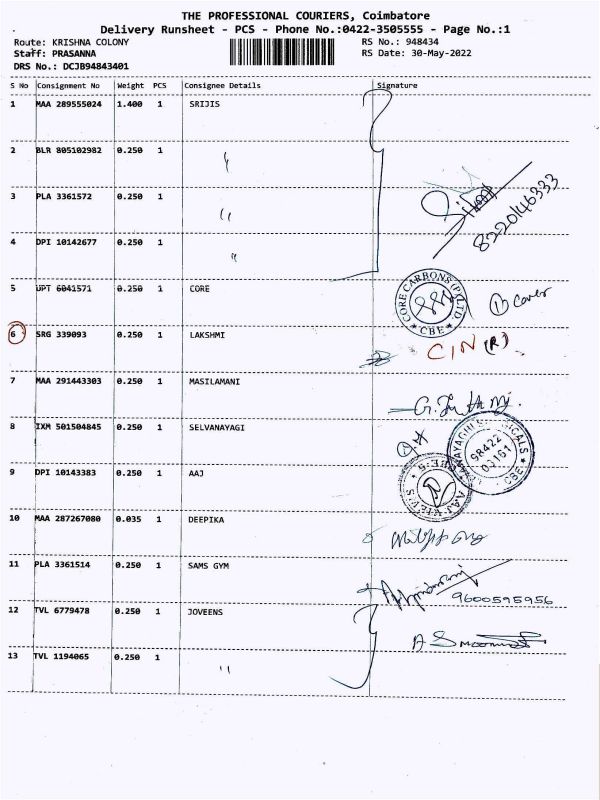 THE PROFESSIONAL COURIERS, Coimbatore
Delivery Runsheet - PCS - Phone No.:0422-3505555 - Page No.:1
Route: KRISHNA COLONY RS No.: 948434
Staff: PRASANNA RS Date: 30-May-2022
DRS No.: DCJB94843401
S No Consignment No Weight PCS Consignee Details Signature
1 MAA 289555024 1.400 1 SRIJIS
2 BLR 805102982 0.250 1 "
3 PLA 3361572 0.250 1 "
8220146333
4 DPI 10142677 0.250 1 "
5 UPT 6041571 0.250 1 CORE
CORE CARBONS (P) LTD
★ CBE ★
① Cover
6 SRG 339093 0.250 1 LAKSHMI
C/N (R)
7 MAA 291443303 0.250 1 MASILAMANI
8 IXM 501504845 0.250 1 SELVANAYAGI
98422
9 DPI 10143383 0.250 1 AAJ
10 MAA 287267080 0.035 1 DEEPIKA
11 PLA 3361514 0.250 1 SAMS GYM
9600595956
12 TVL 6779478 0.250 1 JOVEENS
13 TVL 1194065 0.250 1 "